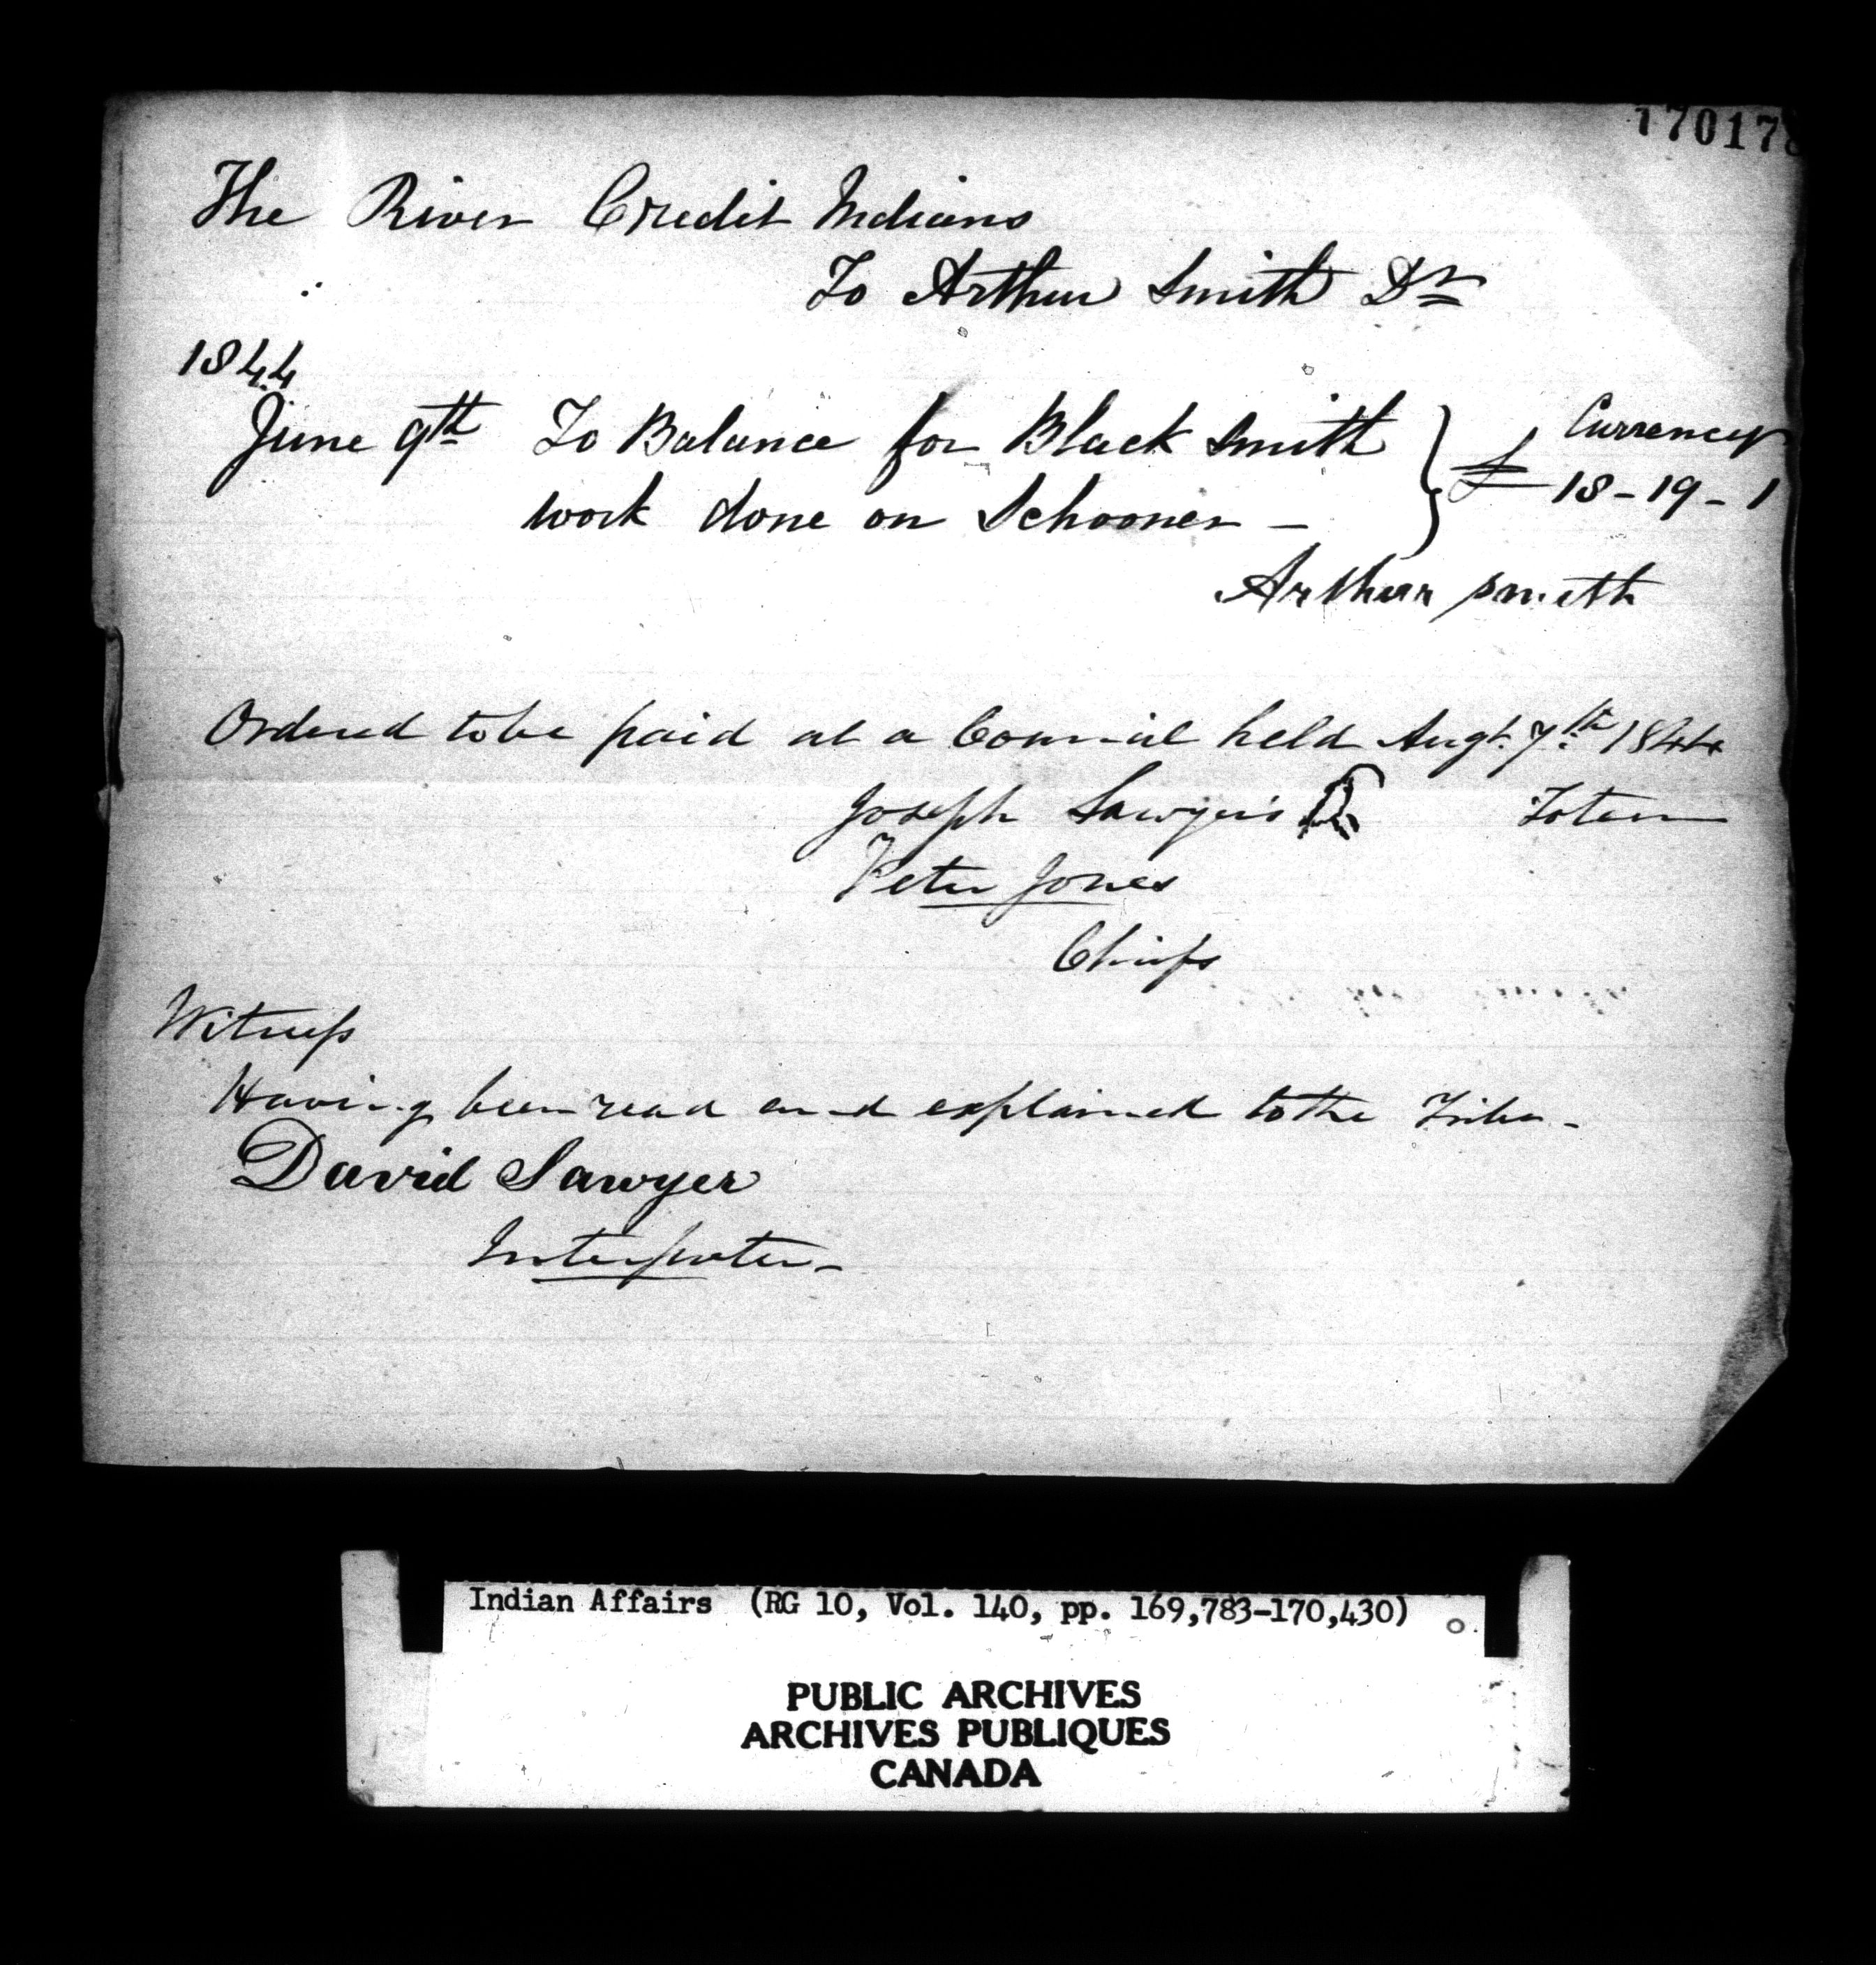 170178
The River Credit Indians
To Arthur Smith Dr
1844
June 9th To Balance for Black Smith
work done on Schooner –
Currency
£ 18-19-1
Arthur Smith
Ordered to be paid at a Council held Augt. 7th 1844
Joseph Sawyer's Totem
Peter Jones
Chiefs
Witness
Having been read and explained to the Tribe –
David Sawyer
Interpreter –
Indian Affairs (RG 10, Vol. 140, pp. 169,783-170,430)
PUBLIC ARCHIVES
ARCHIVES PUBLIQUES
CANADA